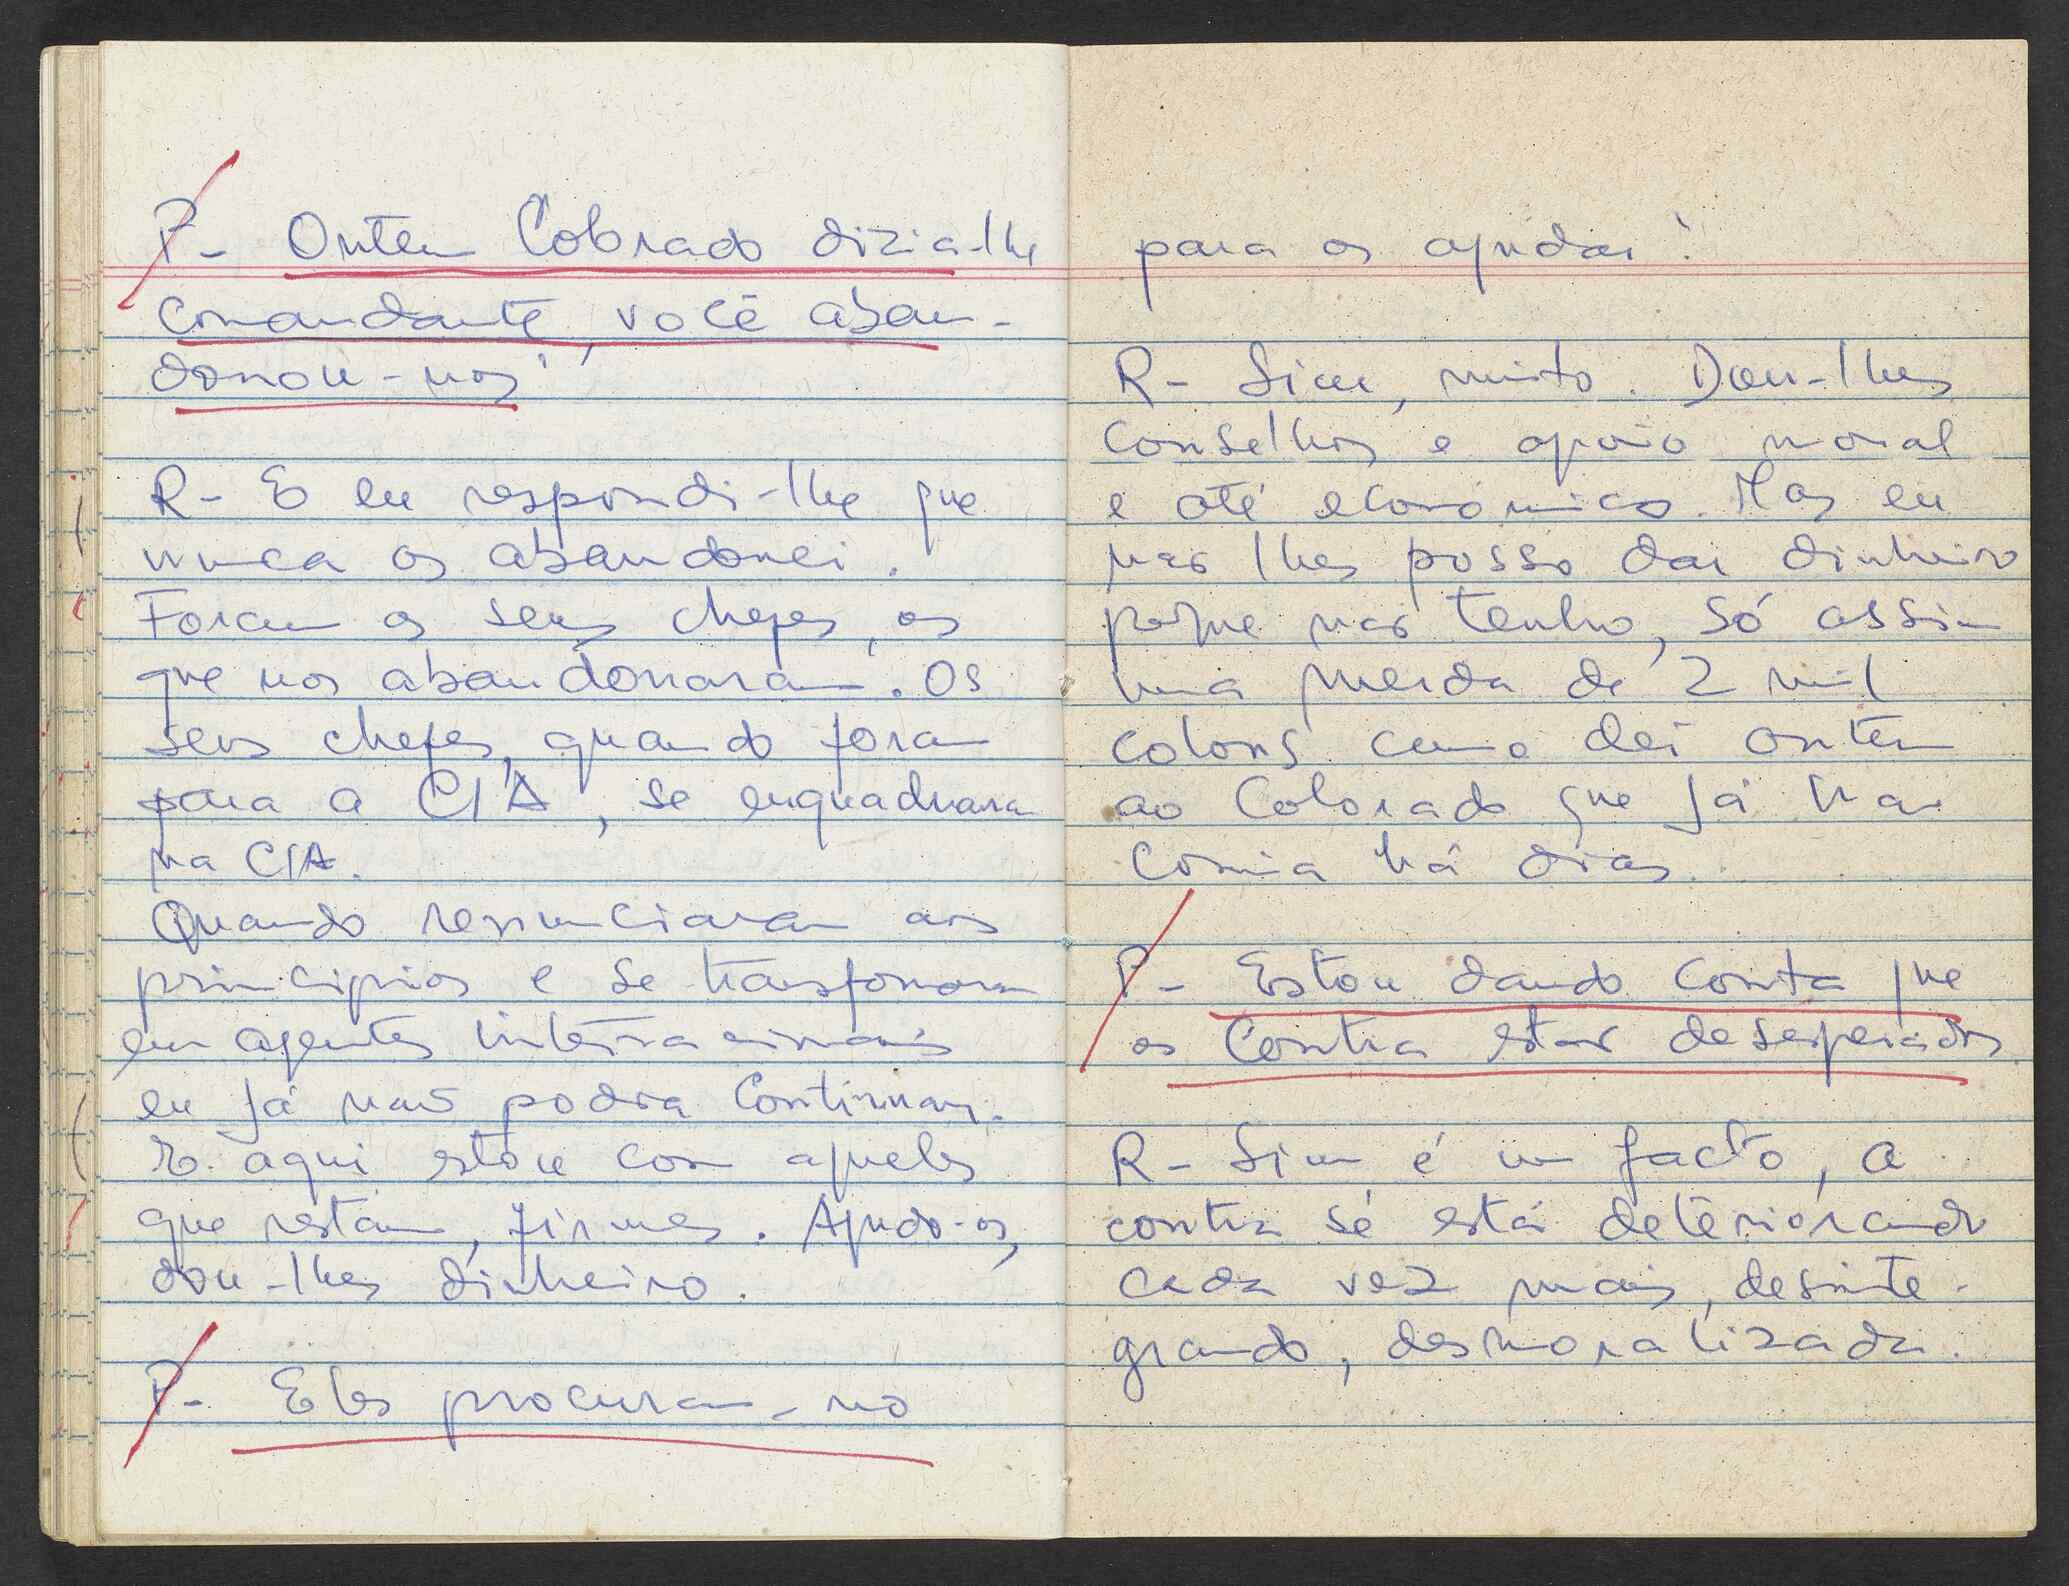 P- Ontem Colorado dizia-lhe
comandante, você aban-
donou-nos'
R- E eu respondi-lhe que
nunca os abandonei.
Foram os seus chefes, os
que nos abandonaram. Os
seus chefes, quando foram
para a CIA, se enquadraram
na CIA.
Quando renunciaram aos
principios e se transformaram
em agentes internacionais
eu já não podia continuar.
E aqui estou com aqueles
que restam, firmes. Ajudo-os,
dou-lhes dinheiro.
P- Eles procuram-no
para os ajudar?
R- Sim, muito. Dou-lhes
conselhos e apoio moral
e até económico. Mas eu
não lhes posso dar dinheiro
porque não tenho, só assim
uma merda de 2 mil
colons como dei ontem
ao Colorado que já não
comia há dias.
P- Estou dando conta que
os Contra estão desesperados.
R- Sim é um facto, a
contra se está deteriorando
cada vez mais, desinte-
grando, desmoralizada.